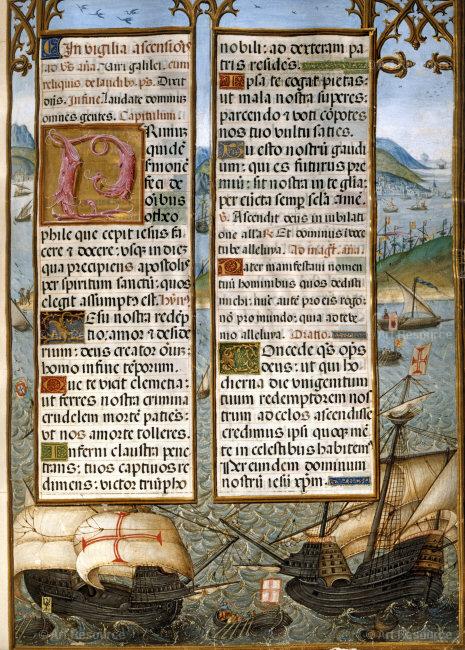 In vigilia ascension
ad vs̄ aña. Viri galilei. cum
reliquis de laudib9. ps. Dixit
dn̄s. Infine. laudate dominum
omnes gentes. Capitulum.
Rimum
quidē
sermonē
feci de
oībus
o theo
phile que cepit iesus fa
cere ⁊ docere: vsqꝫ in diē
qua precipiens apostolis
per spiritum sanctū: quos
elegit assumptꝰ est. Hymꝰ
Iesu nostra redēp
tio: amor ⁊ deside
rium: deus creator oīum:
homo in fine tēporum.
Que te vicit clemētia:
ut ferres nostra crimina
crudelem mortē patiēs:
ut nos amorte tolleres.
Inferni claustra pene
trans: tuos captiuos re
dimens: victor triūpho
nobili: ad dexteram pa
tris residēs.
Ipsa te cogat pietas:
ut mala nostra superes:
parcendo ⁊ voti cōpotes
nos tuo vultu saties.
Tu esto nostrū gaudi
um: qui es futurus pre
miū: sit nostra in te glīa:
per cūcta semp̄ sclā. amē.
Ascendit deus in iubilati
one alla. ℟ Et dominus in voce
tube alleluya. Ad magt̄. aña.
Pater manifestaui nomen
tuū hominibus quos dedisti
michi: nūc autē pro eis rogo
nō pro mundo: quia ad te ve
nio alleluya. Oratio.
Concede qs̄ op̄s
deus: ut qui ho
dierna die vnigenitum
tuum redemptorem nos
trum ad celos ascendisse
credimus ipsi quoqꝫ mē
te in celestibus habitem9
Per eundem dominum
nostrū iesū xp̄m.
© Art Resource
© Art Resource